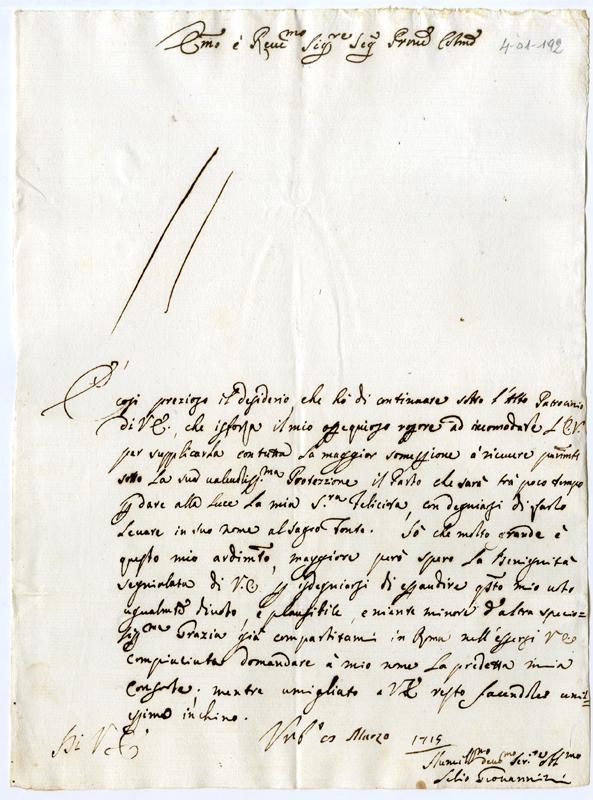 Em̃o è Reuc̃mo Sigre Sig Proñe Colmo
4-01-192
È
così prezioso il desiderio che hò di continuare sotto l'Alto Patrocinio
di V.E., che isforza il mio ossequioso rossore ad incomodare L'E.V.
per supplicarla con tutta la maggior somissione à riceuere parimte
sotto la sua ualeuoliss.ma Protezzione il Parto che sarà trà poco tempo
dare alla luce la mia S.ra Felicita, con degniarsi di farlo
leuare in suo nome al sagro Fonte. Sò che molto grande è
questo mio ardimto, maggiore però spero la Benignità
segnialata di V.E. isdegniarsi di essaudire qsto mio uoto
ugualmte diuoto, e plausibile, e niente minore d'altra specio=
sissma Grazia già compartitami in Roma nell'essersi V.E.
compiaciuta domandare à mio nome la predetta mia
Consorte. mentre umigliato a V.E. resto facendole umil=
issimo inchino.
Di V.E.
Urbo Marzo 1715
Humilissmo deumo Ser.re
Lelio Giovannini